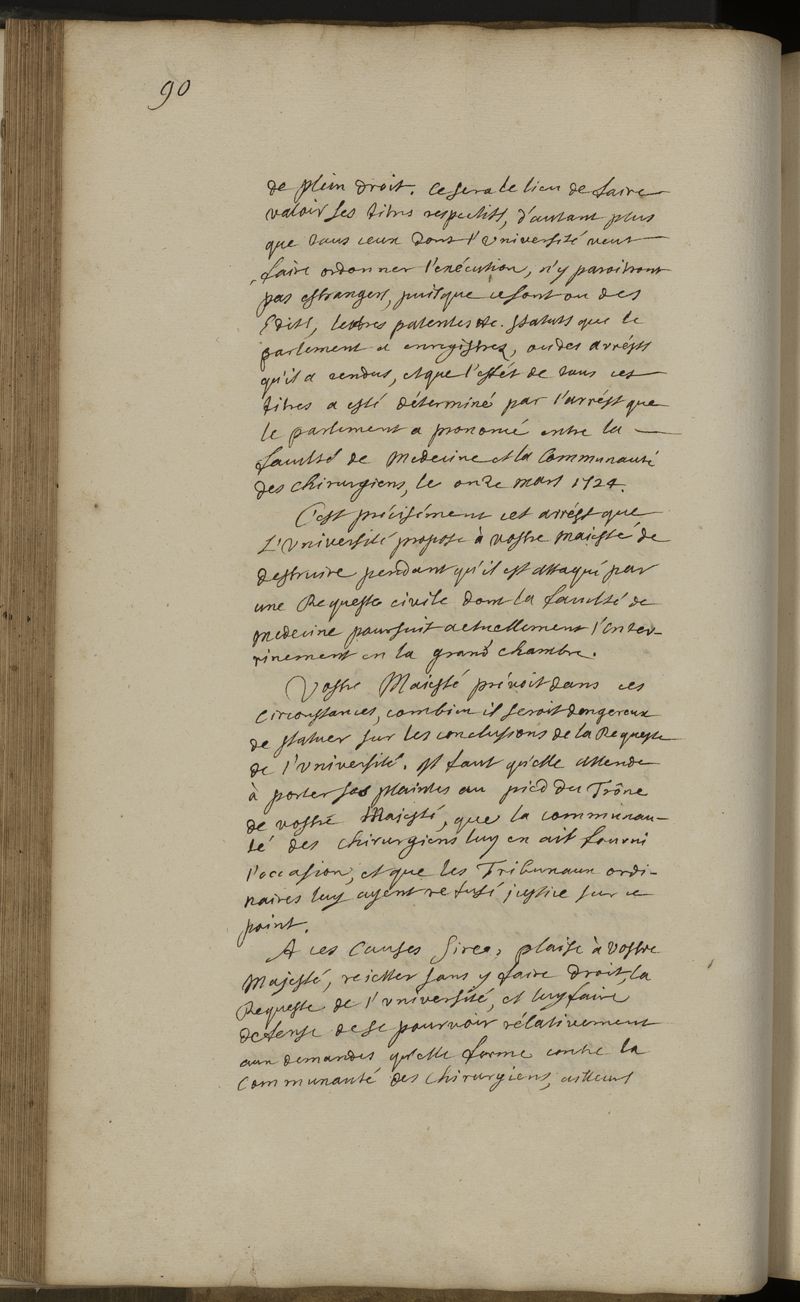 90
de plein droit. Ce sera le lieu de faire
valoir ses titres respectifs, d'autant plus
que tous ceux dont l'Université veut
faire ordonner l'exécution, n'y paroitront
pas estrangers, puisque ce sont ou des
Edits, lettres patentes &c. statuts que le
parlement a enregistrez, ou des arrests
qu'il a rendus, et que l'effét de tous ces
titres a esté déterminé par l'arrést que
le parlement a prononcé entre la
faculté de Medecine et la Communauté
des chirurgiens, le onze mars 1724.
C'est précisément cet arrést que
L'Université propose à vostre maiesté de
destruire pendant qu'il est attaqué par
une Requeste civile dont la faculté de
medecine poursuit actuellement l'enter-
rinement en la grand chambre.
Vostre Maiesté prévoit dans ces
circonstances, combien il seroit dangereux
de statuer sur les conclusions de la Requeste
de l'Université. Il faut qu'elle attende
à porter ses plaintes au pied du Trône
de vostre Majesté, que la communau-
té des chirurgiens luy en ait fourni
l'occasion, et que les Tribunaux ordi-
naires luy ayent refusé justice sur ce
point.
A ces Causes Sire, plaise à Vostre
Majesté, reietter sans y faire droit, la
Requeste de l'Université, et luy faire
defense de se pourvoir rélativement
aux demandes qu'elle forme contre la
Communauté des chirurgiens, ailleurs